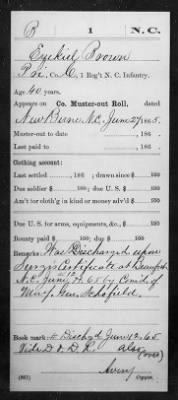 B 1 N.C.
Ezekiel Brown
Co. C, 1 Reg't N. C. Infantry.
Age 40 years.
Appears on Co. Muster-out Roll, dated
New Berne, N.C., June 27, 1865.
Muster-out to date , 186 .
Last paid to , 186 .
Clothing account:
Last settled , 186 ; drawn since $ 100
Due soldier $ 100; due U. S. $ 100
Am't for cloth'g in kind or money adv'd $ 100
Due U. S. for arms, equipments, &c., $ 100
Bounty paid $ 100; due $ 100
Remarks: Was Discharged upon
Surg's Certificate at Beaufort
N.C. June 12 65 by Com'd. of
Maj. Gen. Schofield.
Book mark: Disch'd June 12. 65
Vide D. & D. R. also
(over)
Avery
Copyist.